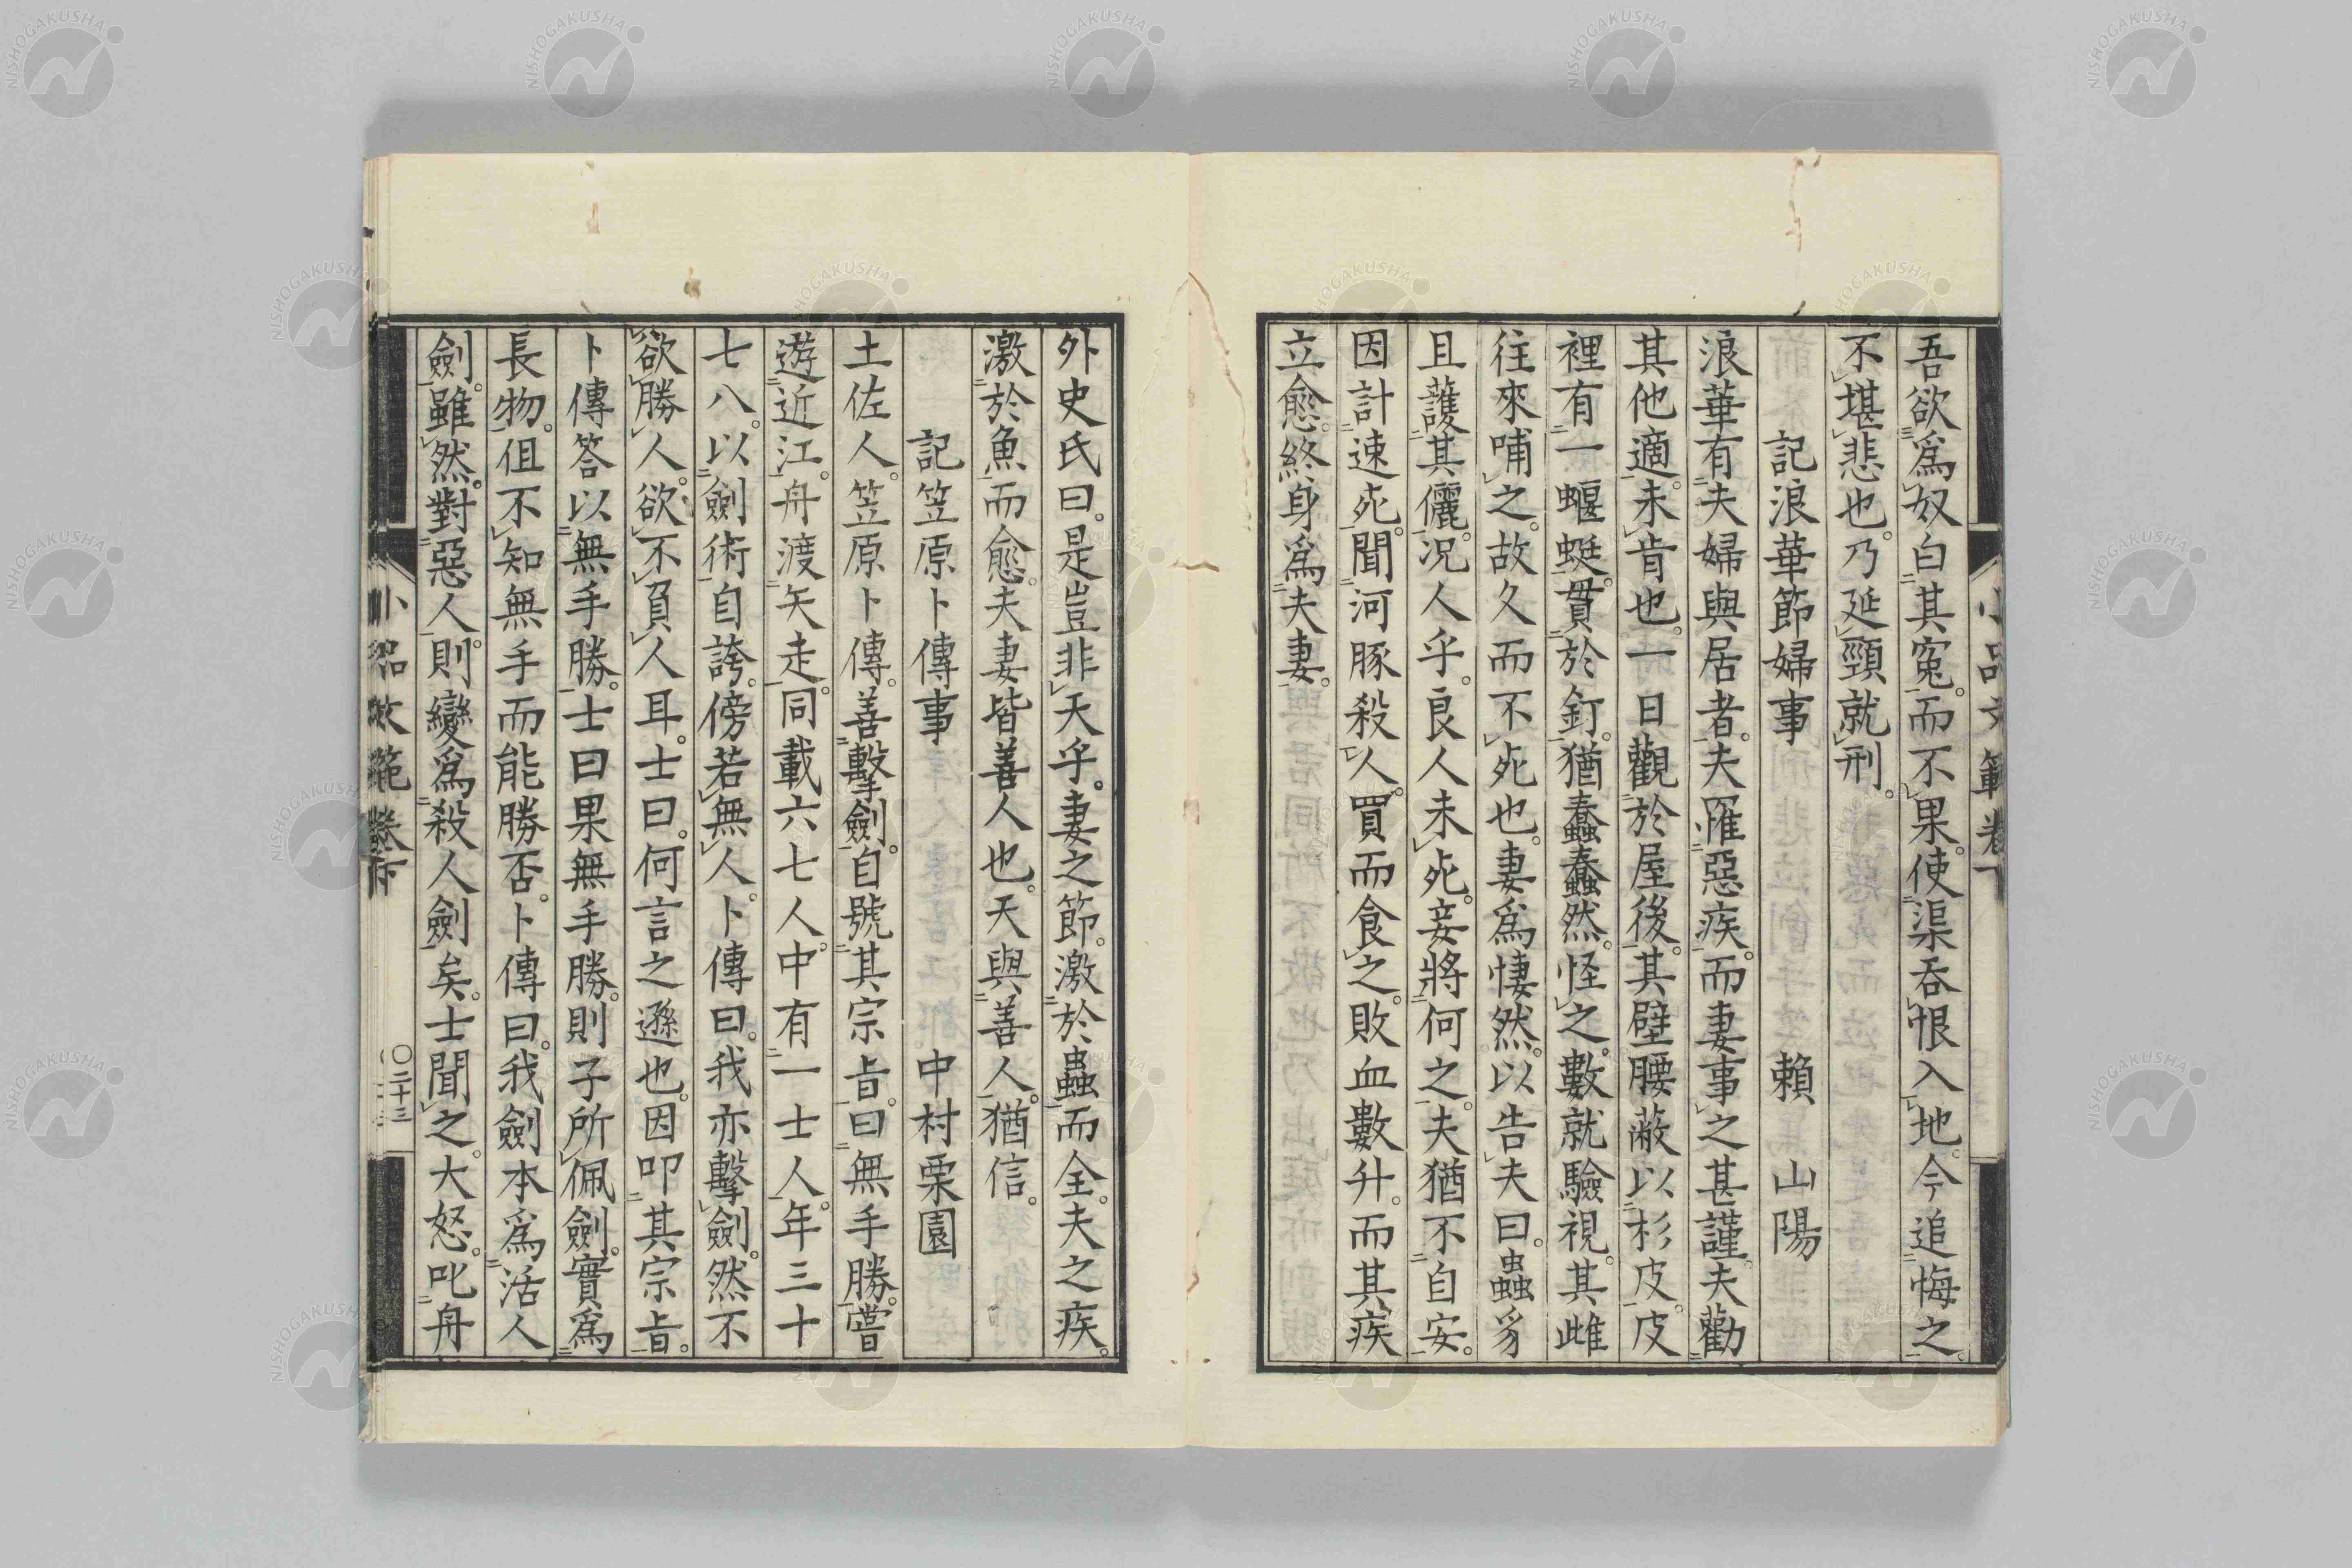 吾欲爲奴白其寃。而不果。使渠呑恨入地。今追悔之。
不堪悲也。乃延頸就刑。
記浪華節婦事 賴山陽
浪華有夫婦與居者。夫罹惡疾。而妻事之甚謹。夫勸
其他適。未肯也。一日觀於屋後。其壁腰蔽以杉皮。皮
裡有一蝘蜓。貫於釘。猶蠢蠢然。怪之。數就驗視。其雌
往來哺之。故久而不死也。妻爲悽然。以告夫曰。蟲豸
且護其儷。况人乎。良人未死。妾將何之。夫猶不自安。
因計速死。聞河豚殺人。買而食之。敗血數升。而其疾
立愈。終身爲夫妻。
外史氏曰。是豈非天乎。妻之節。激於蟲而全。夫之疾。
激於魚而愈。夫妻皆善人也。天與善人。猶信。
記笠原卜傳事 中村栗園
土佐人。笠原卜傳。善擊劍。自號其宗旨。曰無手勝。嘗
遊近江。舟渡矢走。同載六七人。中有一士人。年三十
七八。以劍術自誇。傍若無人。卜傳曰。我亦擊劍。然不
欲勝人。欲不負人耳。士曰。何言之遜也。因叩其宗旨。
卜傳答以無手勝。士曰果無手勝。則子所佩劍。實爲
長物。伹不知無手而能勝否。卜傳曰。我劍本爲活人
劍。雖然。對惡人。則變爲殺人劍矣。士聞之。大怒。叱舟
小品文範卷下 〇二十三